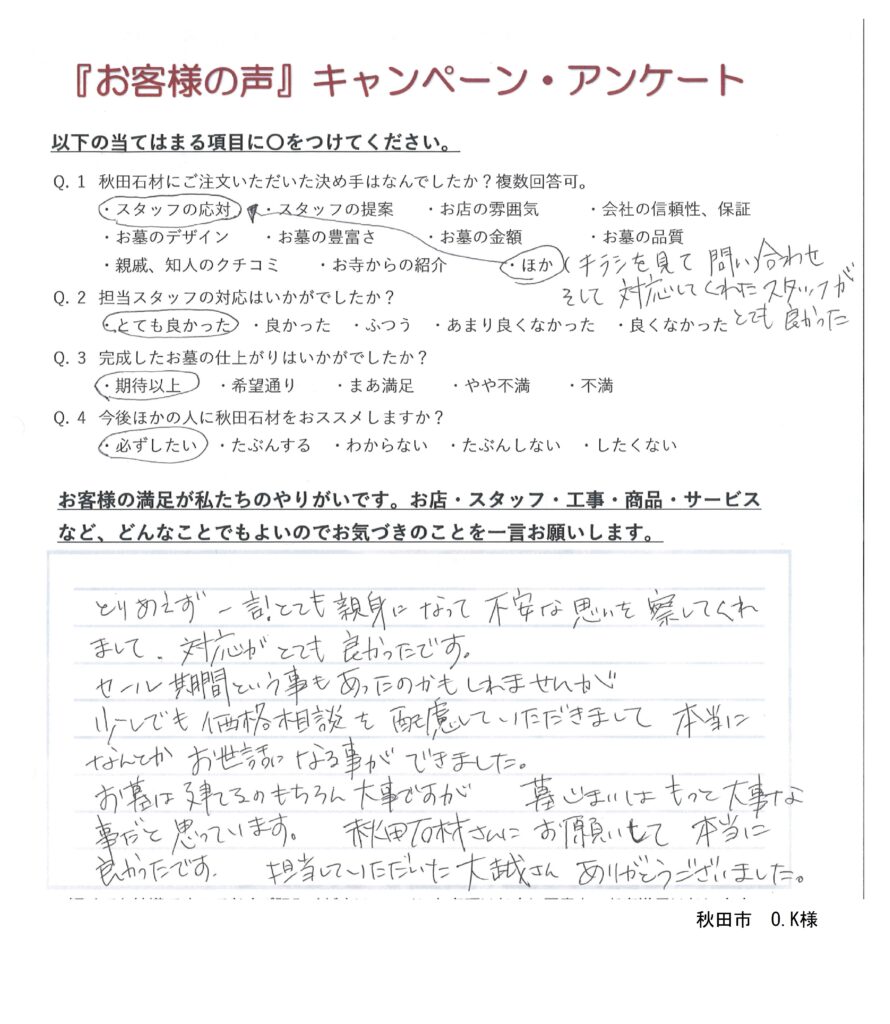 『お客様の声』キャンペーン・アンケート
以下の当てはまる項目に〇をつけてください。
Q. 1 秋田石材にご注文いただいた決め手はなんでしたか？複数回答可。
・スタッフの応対 ・スタッフの提案 ・お店の雰囲気 ・会社の信頼性、保証
・お墓のデザイン ・お墓の豊富さ ・お墓の金額 ・お墓の品質
・親戚、知人のクチコミ ・お寺からの紹介 ・ほか (チラシを見て 問い合わせ
そして 対応してくれたスタッフが
とても 良かった
Q. 2 担当スタッフの対応はいかがでしたか？
・とても良かった ・良かった ・ふつう ・あまり良くなかった ・良くなかった
Q. 3 完成したお墓の仕上がりはいかがでしたか？
・期待以上 ・希望通り ・まあ満足 ・やや不満 ・不満
Q. 4 今後ほかの人に秋田石材をおススメしますか？
・必ずしたい ・たぶんする ・わからない ・たぶんしない ・したくない
お客様の満足が私たちのやりがいです。お店・スタッフ・工事・商品・サービス
など、どんなことでもよいのでお気づきのことを一言お願いします。
とりあえず 一言!とても親身になって 不安な思いを察してくれ
まして、対応がとても良かったです。
セール期間という事もあったのかもしれませんが
少しでも価格相談を配慮していただきまして 本当に
なんとか お世話になる事ができました。
お墓は建てるのもちろん大事ですが 墓じまいはもっと大事な
事だと思っています。 秋田石材さんにお願いして 本当に
良かったです。 担当していただいた大越さん ありがとうございました。
秋田市 O.K様